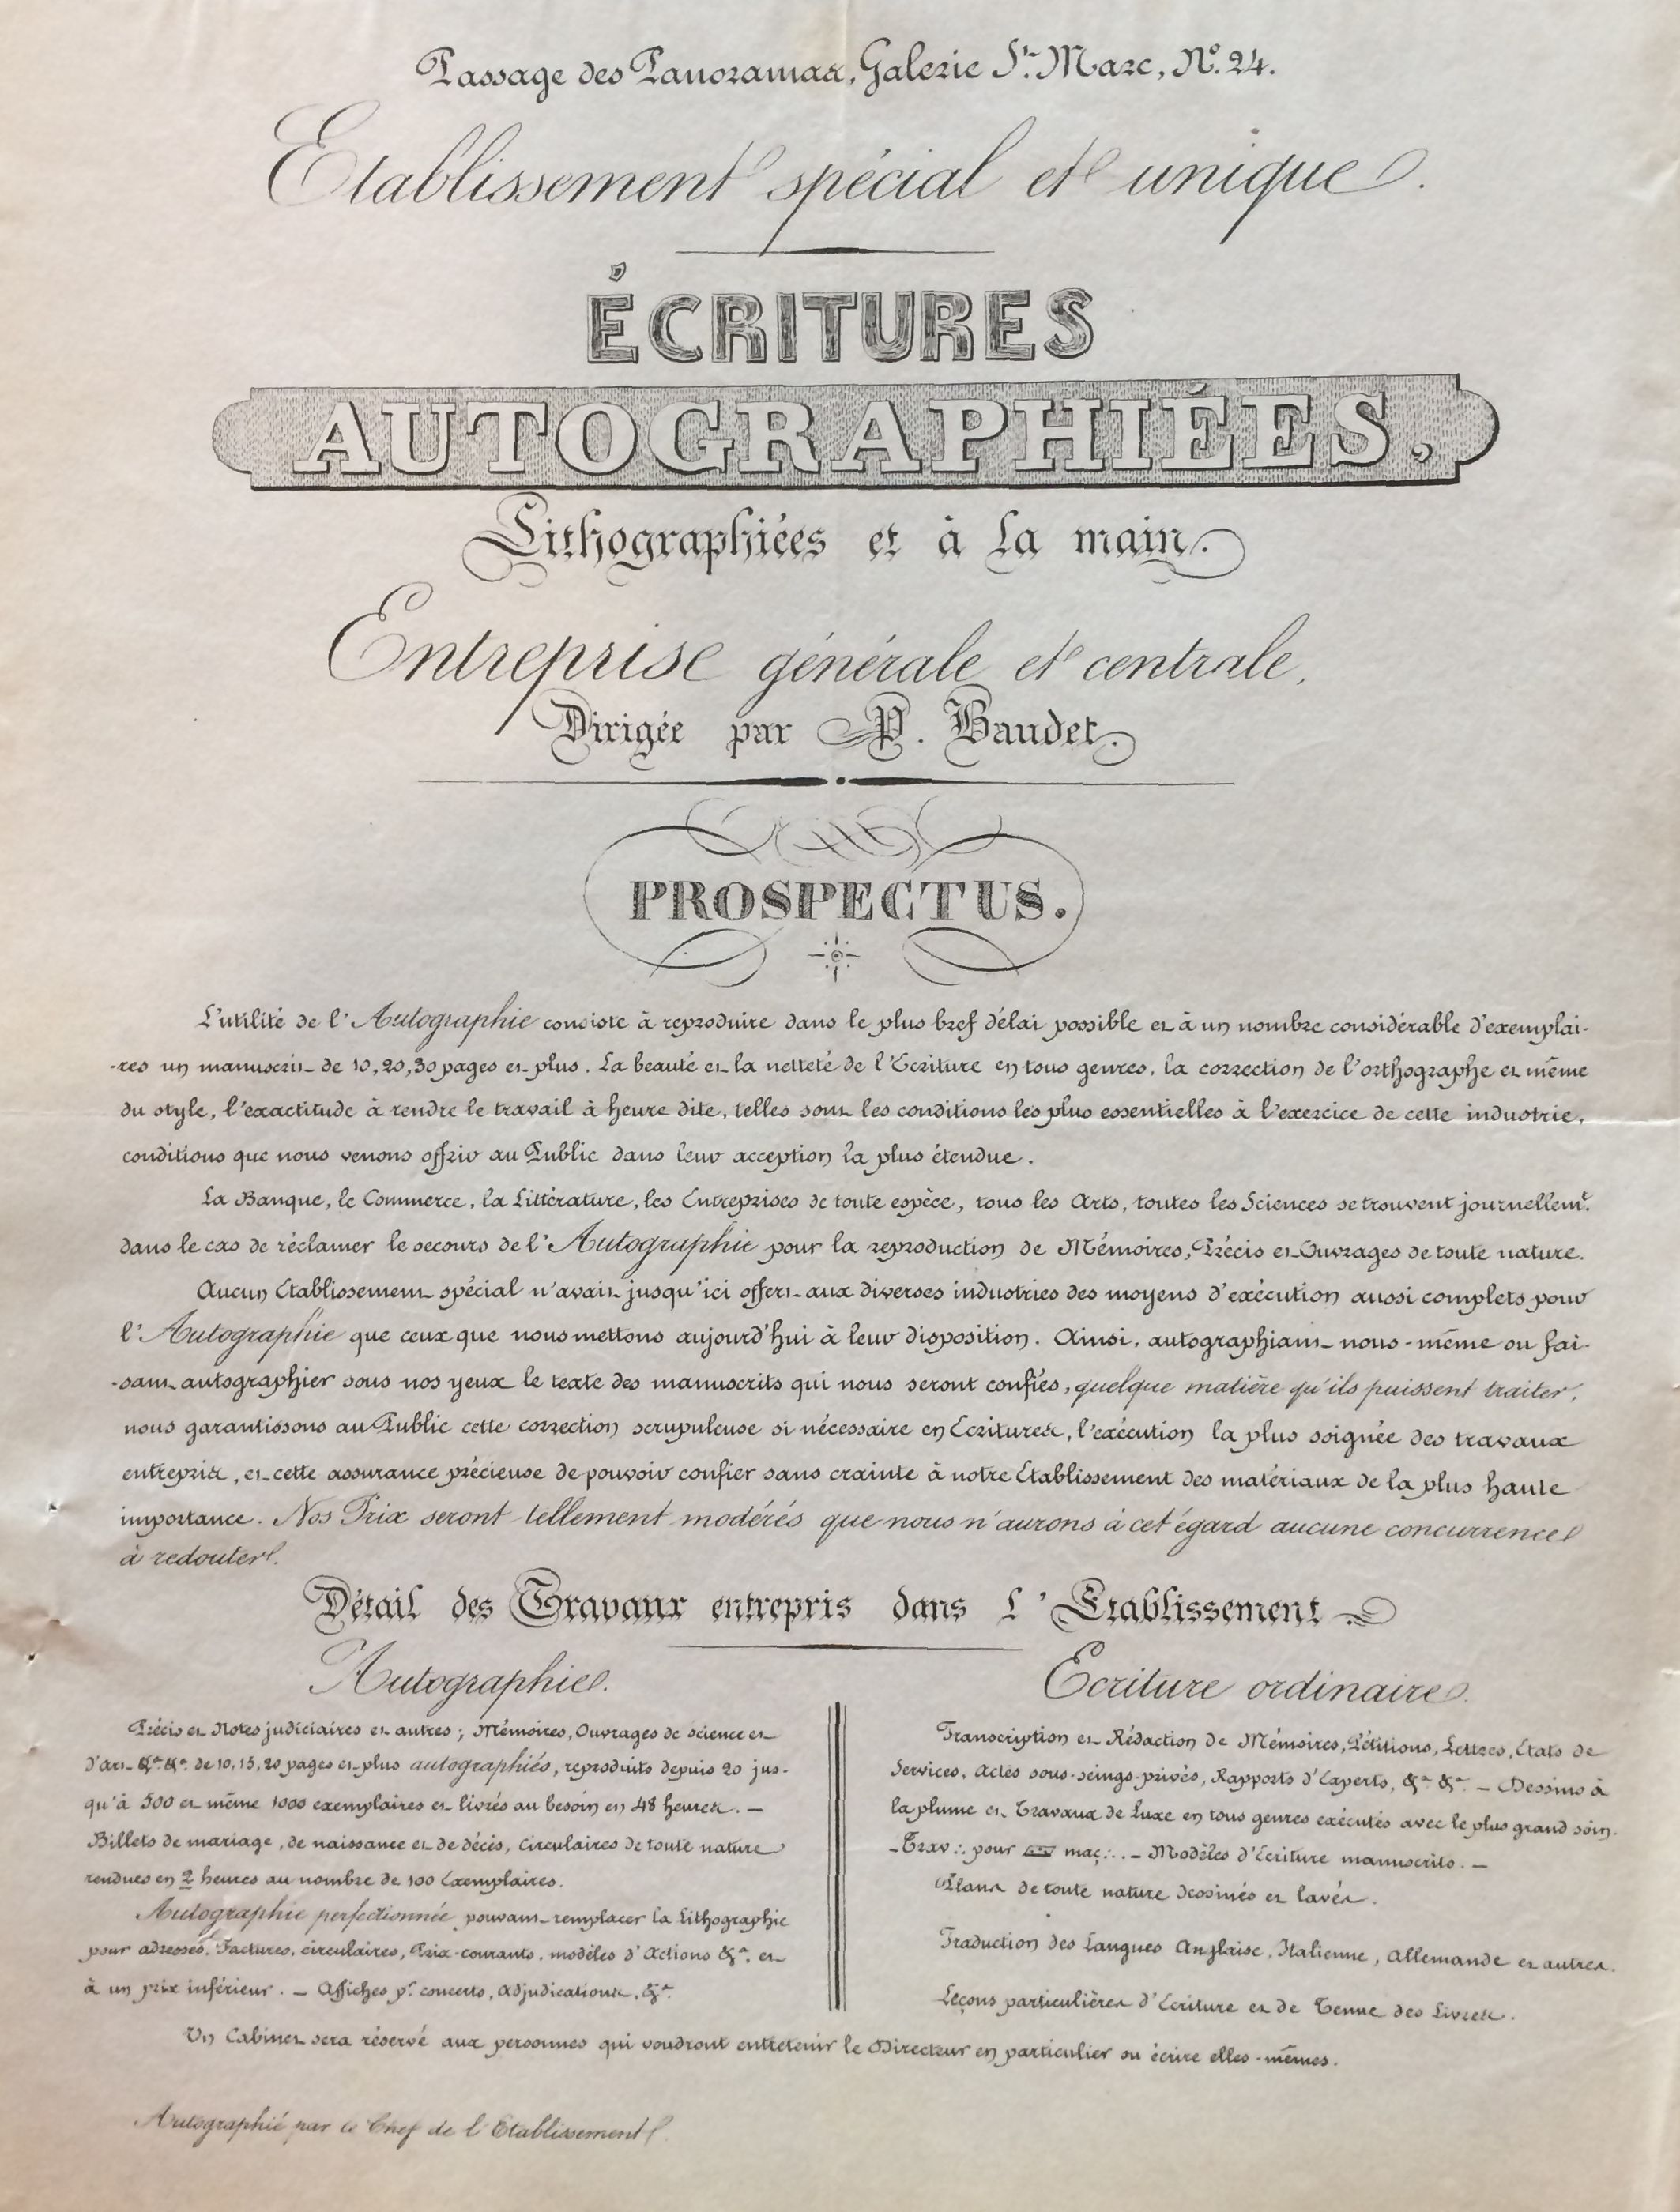 Passage des Panoramas, Galerie St. Marc, No. 24.
Etablissement spécial et unique.
ÉCRITURES
AUTOGRAPHIÉES,
Lithographiées et à la main.
Entreprise générale et centrale,
Dirigée par P. Baudet.
PROSPECTUS.
L'utilité de l'Autographie consiste à reproduire dans le plus bref délai possible et à un nombre considérable d'exemplai-
-res un manuscrit de 10, 20, 30 pages et plus. La beauté et la netteté de l'Ecriture en tous genres, la correction de l'orthographe et même
du style, l'exactitude à rendre le travail à heure dite, telles sont les conditions les plus essentielles à l'exercice de cette industrie,
conditions que nous venons offrir au Public dans leur acception la plus étendue.
La Banque, le Commerce, la Littérature, les Entreprises de toute espèce, tous les Arts, toutes les Sciences se trouvent journellemt.
dans le cas de réclamer le secours de l'Autographie pour la reproduction de Mémoires, Précis et Ouvrages de toute nature.
Aucun Etablissement spécial n'avait jusqu'ici offert aux diverses industries des moyens d'exécution aussi complets pour
l'Autographie que ceux que nous mettons aujourd'hui à leur disposition. Ainsi, autographiant nous-même ou fai-
-sant autographier sous nos yeux le texte des manuscrits qui nous seront confiés, quelque matière qu'ils puissent traiter,
nous garantissons au Public cette correction scrupuleuse si nécessaire en Ecritures, l'exécution la plus soignée des travaux
entrepris, et cette assurance précieuse de pouvoir confier sans crainte à notre Etablissement des matériaux de la plus haute
importance. Nos Prix seront tellement modérés que nous n'aurons à cet égard aucune concurrence
à redouter.
Détail des Travaux entrepris dans l'Etablissement
Autographie.
Précis et Notes judiciaires et autres ; Mémoires, Ouvrages de science et
d'art &a. &a. de 10, 15, 20 pages et plus autographiés, reproduits depuis 20 jus-
qu'à 500 et même 1000 exemplaires et livrés au besoin en 48 heures. —
Billets de mariage, de naissance et de décès, circulaires de toute nature
rendues en 2 heures au nombre de 100 Exemplaires.
Autographie perfectionnée pouvant remplacer la Lithographie
pour adresses, Factures, circulaires, Prix-courants, modèles d'Actions &a. et
à un prix inférieur. — Affiches pr. concerts, adjudications, &a.
Ecriture ordinaire.
Transcription et Rédaction de Mémoires, Pétitions, Lettres, Etats de
Services, Actes sous-seings-privés, Rapports d'Experts, &a. &a. — Dessins à
la plume et Travaux de Luxe en tous genres exécutés avec le plus grand soin.
-Trav∴ pour maç∴. — Modèles d'Ecriture manuscrits. —
Plans de toute nature dessinés et lavés.
Traduction des Langues Anglaise, Italienne, Allemande et autres.
Leçons particulières d'Ecriture et de Tenue des Livres.
Un Cabinet sera réservé aux personnes qui voudront entretenir le Directeur en particulier ou écrire elles-mêmes.
Autographié par le Chef de l'Etablissement.